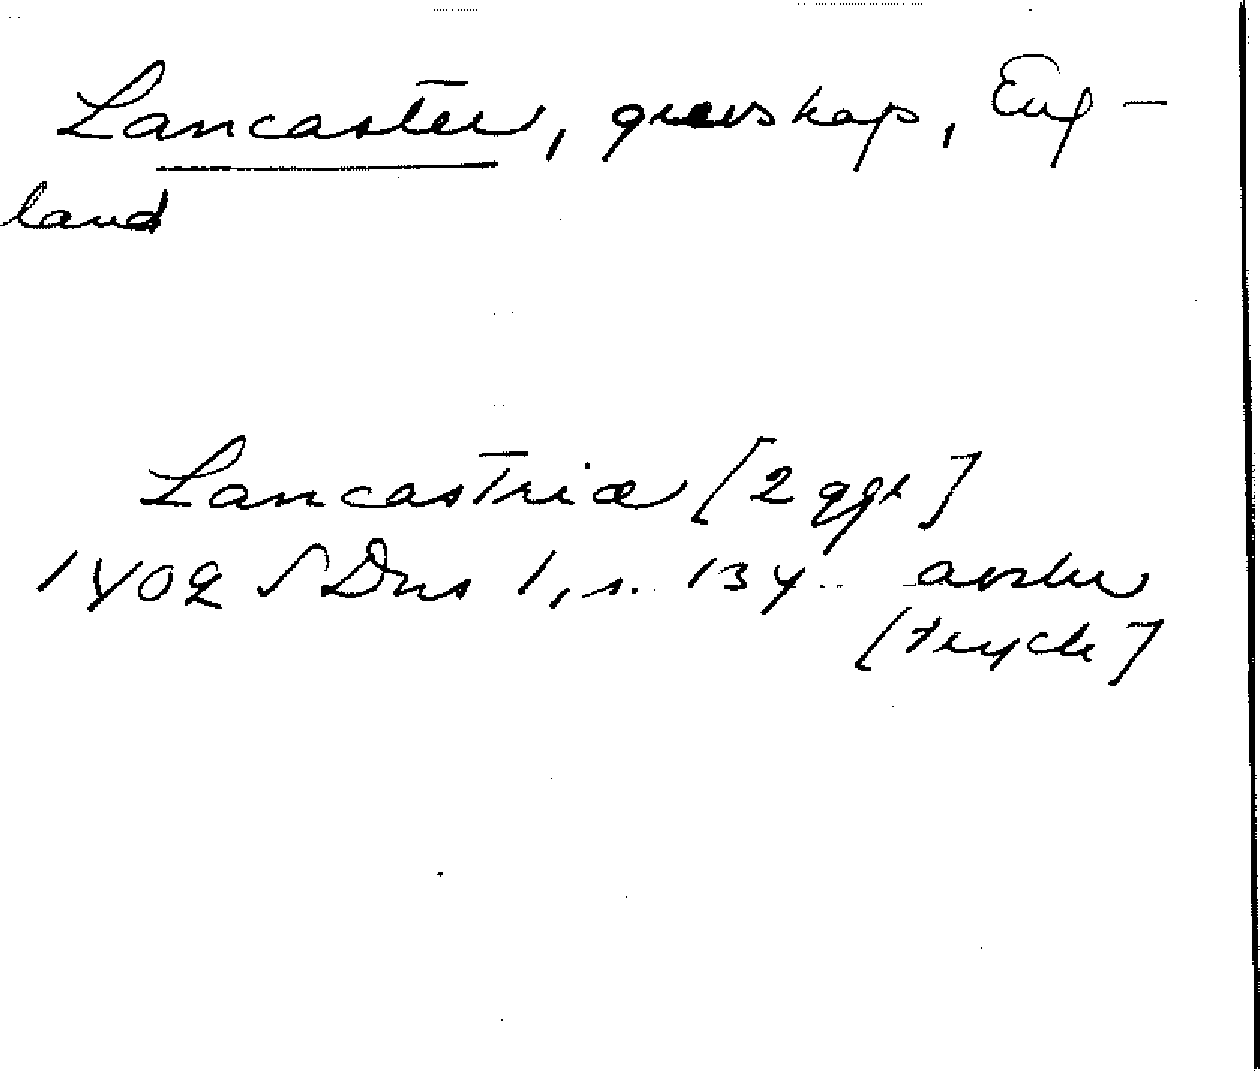 Lancaster, grevskap, Eng-
land
Lancastriæ [2 ggr]
1402 SDns 1, s. 134 avskr
[tryck]